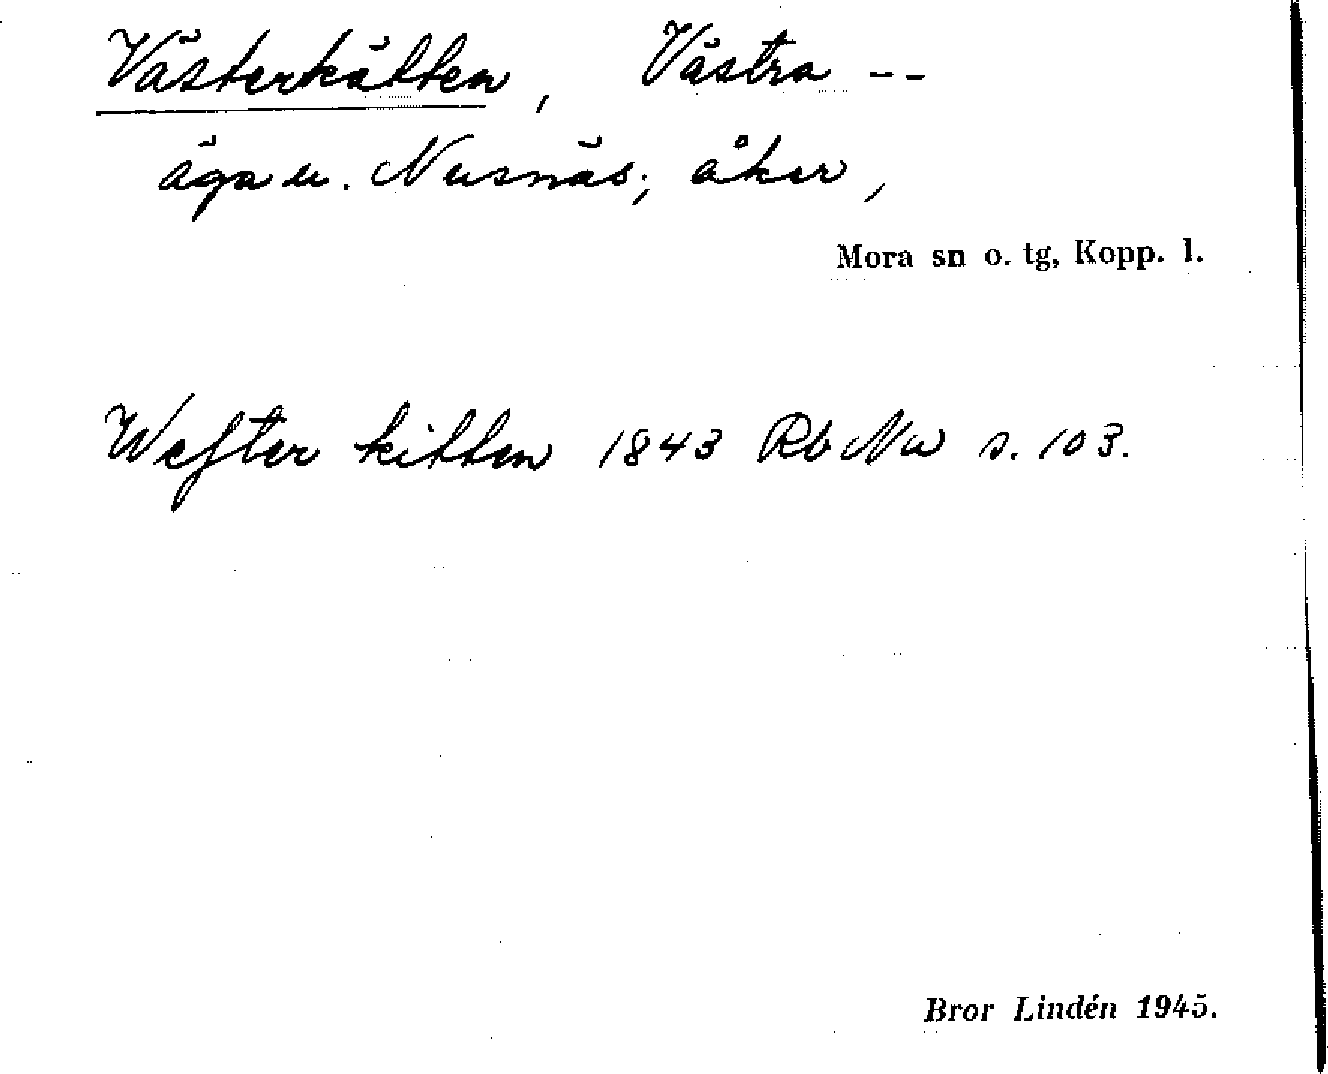 Västerkätten, Västra --
äga u. Nusnäs; åker,
Mora sn o. tg, Kopp. l.
Wefter kitten 1843 Rb Nu s. 103.
Bror Lindén 1945.